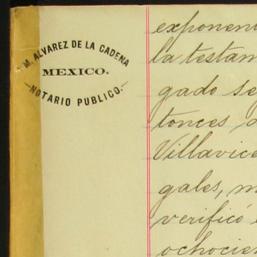 M. ALVAREZ DE LA CADENA
MEXICO.
NOTARIO PUBLICO.
exponen
la testam
gado se
tonces,
Villavice
gales, m
verificó
ochocien